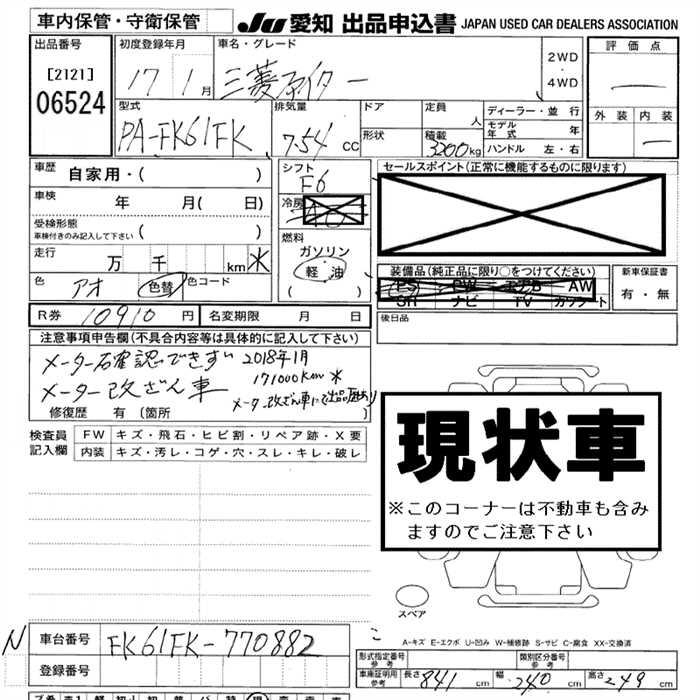 車内保管・守衛保管 JU 愛知 出品申込書 JAPAN USED CAR DEALERS ASSOCIATION
出品番号 初度登録年月 車名・グレード 評価点
[2121] 17 1月 三菱ファイター 2WD・4WD
06524
外装 内装
型式 排気量 ドア 定員 ディーラー・並行
PA-FK61FK 7.54 cc 人 モデル年式 年
形状 積載 3200kg ハンドル 左・右
車歴 自家用・( ) シフト F6 セールスポイント(正常に機能するものに限ります)
車検 年 月( 日) 冷房
受検形態
車検付きのみ記入して下さい ( ) 燃料
走行 万 千 km ガソリン
軽・油
色 アオ 色替 色コード ( )
装備品(純正品に限り○をつけてください) 新車保証書
PS PW エアB AW 有・無
SR ナビ TV カワシート
R券 10910円 名変期限 月 日 後日品
注意事項申告欄(不具合内容等は具体的に記入して下さい)
メーター石確認できずい 2018年1月
171000km
メーター改ざん車
メーター改ざん車にて出品歴あり
修復歴 有 〔箇所 〕
検査員記入欄 FW キズ・飛石・ヒビ割・リペア跡・X要
内装 キズ・汚レ・コゲ・穴・スレ・キレ・破レ
現状車
※このコーナーは不動車も含み
ますのでご注意下さい
スペア
A-キズ E-エクボ U-凹み W-補修跡 S-サビ C-腐食 XX-交換済
N 車台番号 FK61FK-770882
登録番号
形式指定番号 参考 類別区分番号 参考
車庫証明用 参考 長さ 841cm 幅 240cm 高さ 249cm